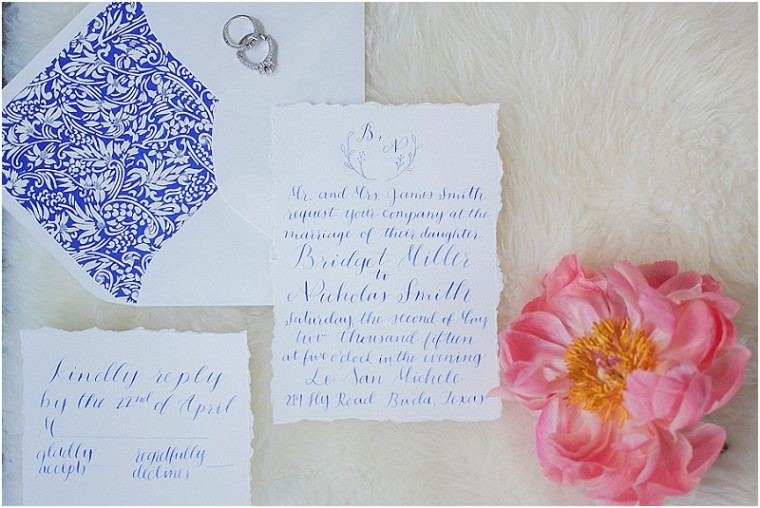 B, N
Mr. and Mrs. James Smith
request your company at the
marriage of their daughter
Bridget Miller
to
Nicholas Smith
Saturday, the second of May
two thousand fifteen
at five o'clock in the evening
Le San Michele
Road Buda, Texas
Kindly reply
by the 22nd of April
M
gladly accepts
regretfully declines